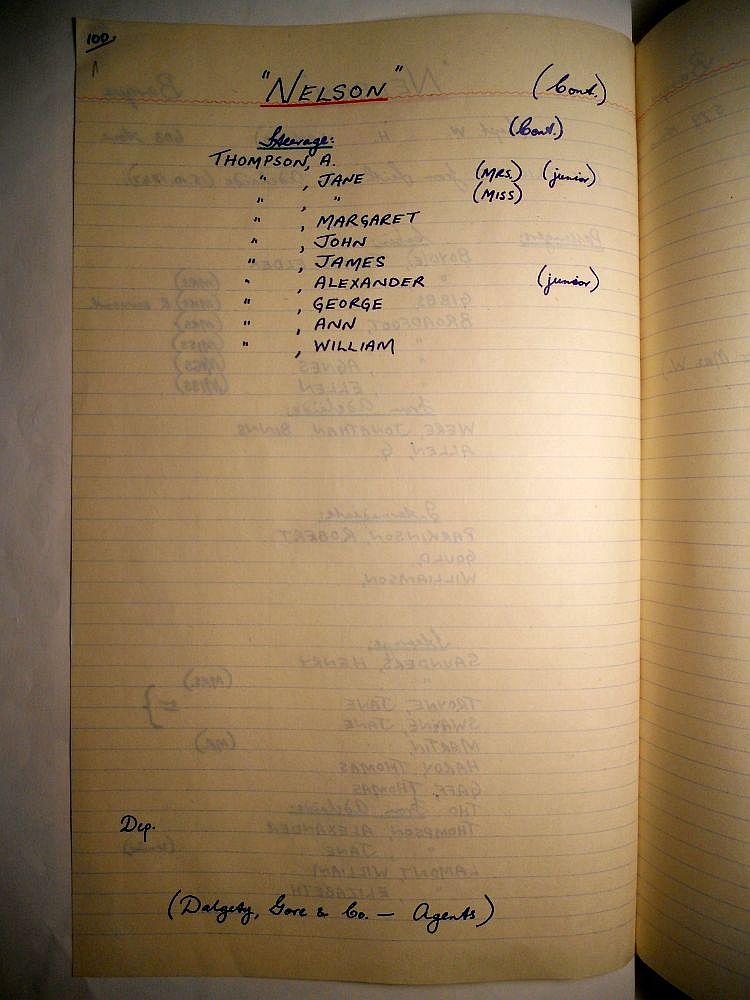 100
"NELSON" (Cont.)
Steerage: (Cont.)
THOMPSON, A.
" , JANE (MRS.) (junior)
" , " (MISS)
" , MARGARET
" , JOHN
" , JAMES
" , ALEXANDER (junior)
" , GEORGE
" , ANN
" , WILLIAM
Dep.
(Dalgety, Gore & Co. — Agents)